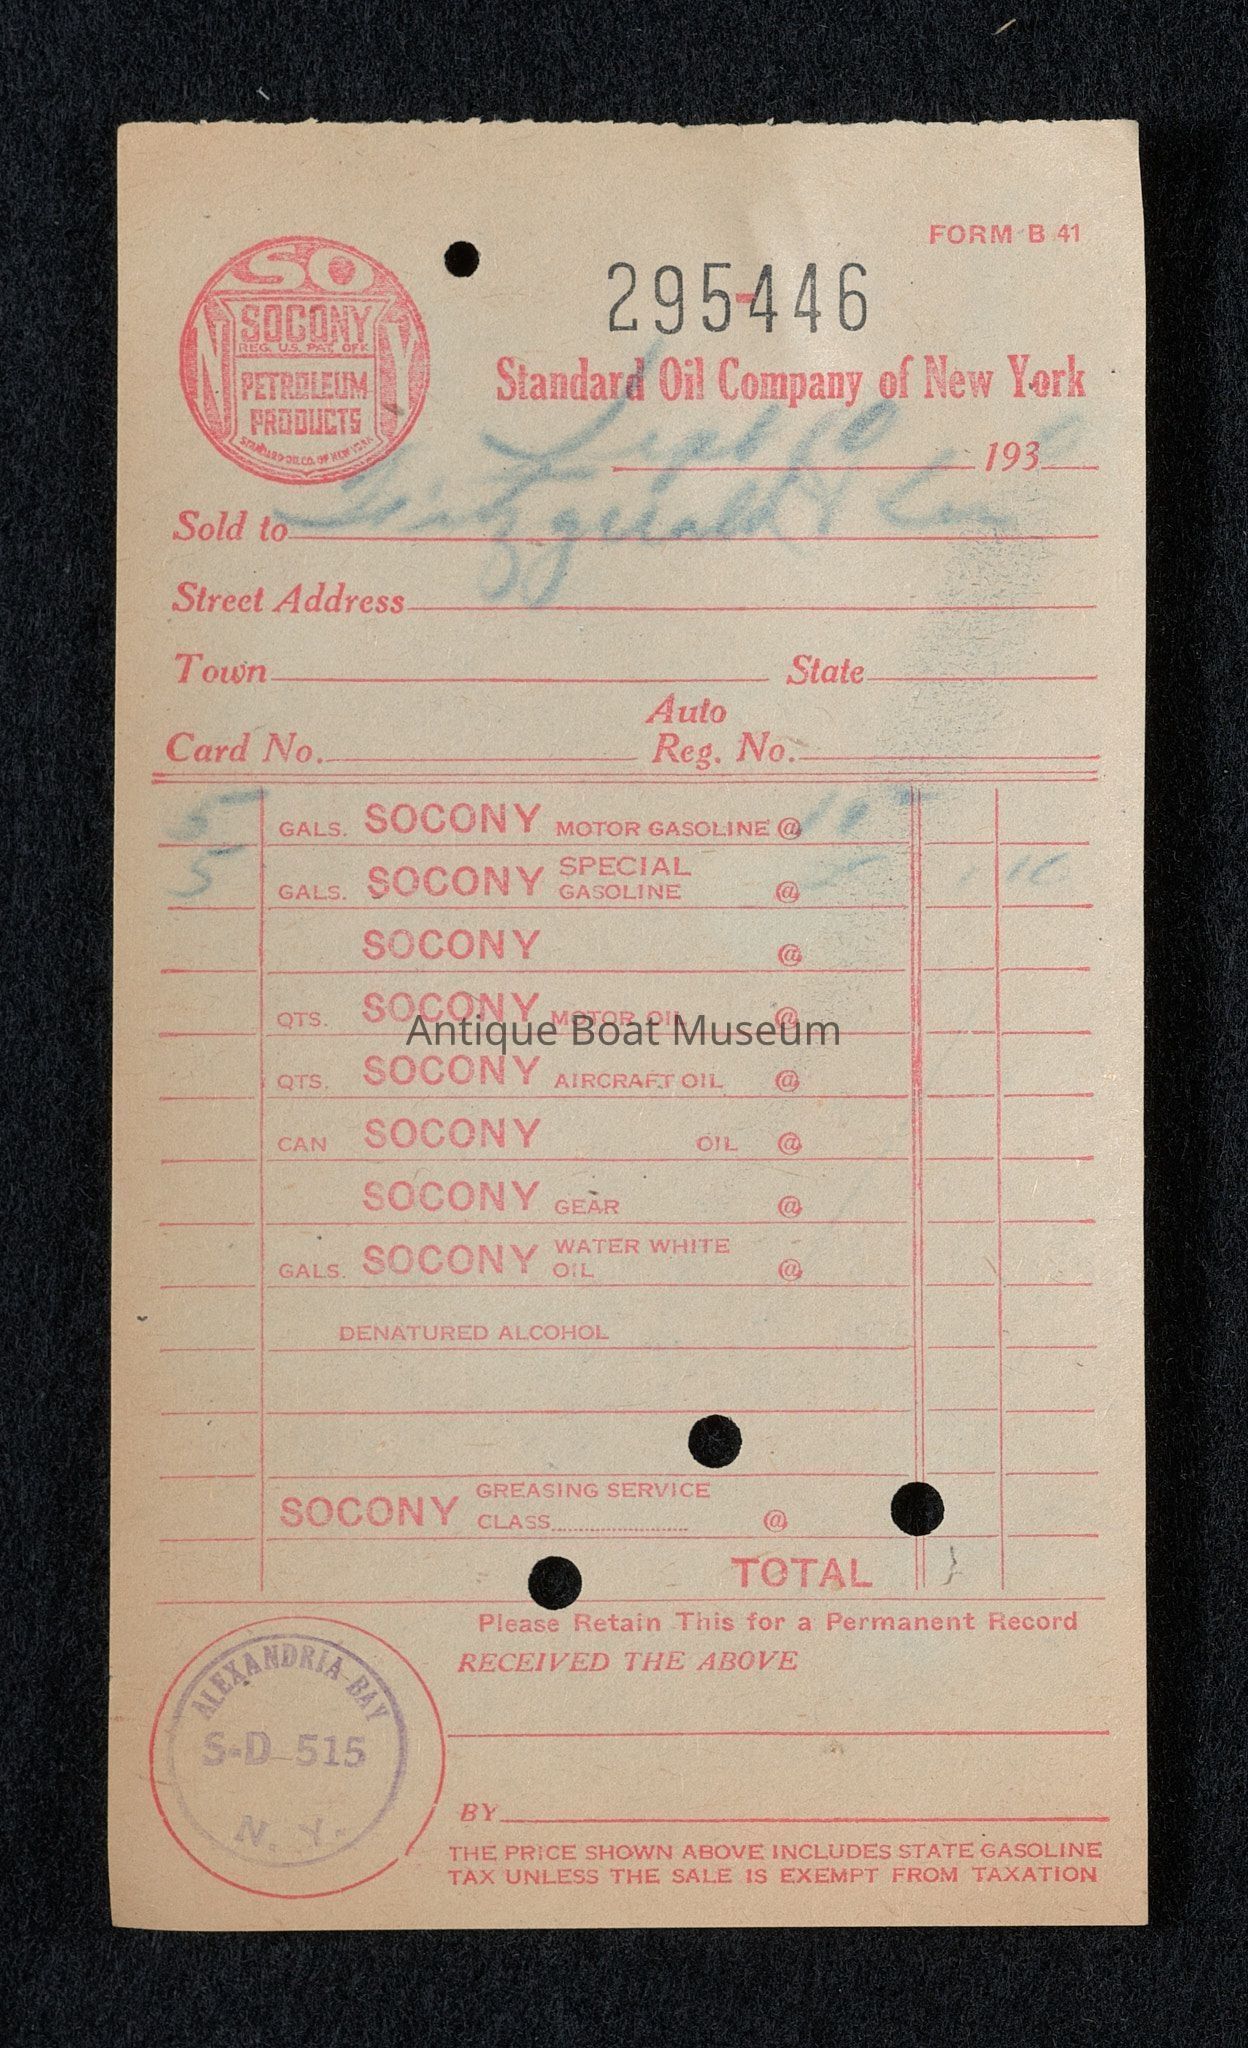 FORM B 41
SO
N Y
SOCONY
REG. U.S. PAT. OFF.
PETROLEUM
PRODUCTS
STANDARD OIL CO. OF NEW YORK
295-446
Standard Oil Company of New York
Sept 10 193
Sold to Fitzgerald &
Street Address
Town State
Auto
Card No. Reg. No.
5 GALS. SOCONY MOTOR GASOLINE @
5 GALS. SOCONY SPECIAL GASOLINE @
SOCONY @
QTS. SOCONY MOTOR OIL @
Antique Boat Museum
QTS. SOCONY AIRCRAFT OIL @
CAN SOCONY OIL @
SOCONY GEAR @
GALS. SOCONY WATER WHITE OIL @
DENATURED ALCOHOL
SOCONY GREASING SERVICE
CLASS @
TOTAL
Please Retain This for a Permanent Record
RECEIVED THE ABOVE
ALEXANDRIA BAY
S-D 515
N. Y.
BY
THE PRICE SHOWN ABOVE INCLUDES STATE GASOLINE
TAX UNLESS THE SALE IS EXEMPT FROM TAXATION